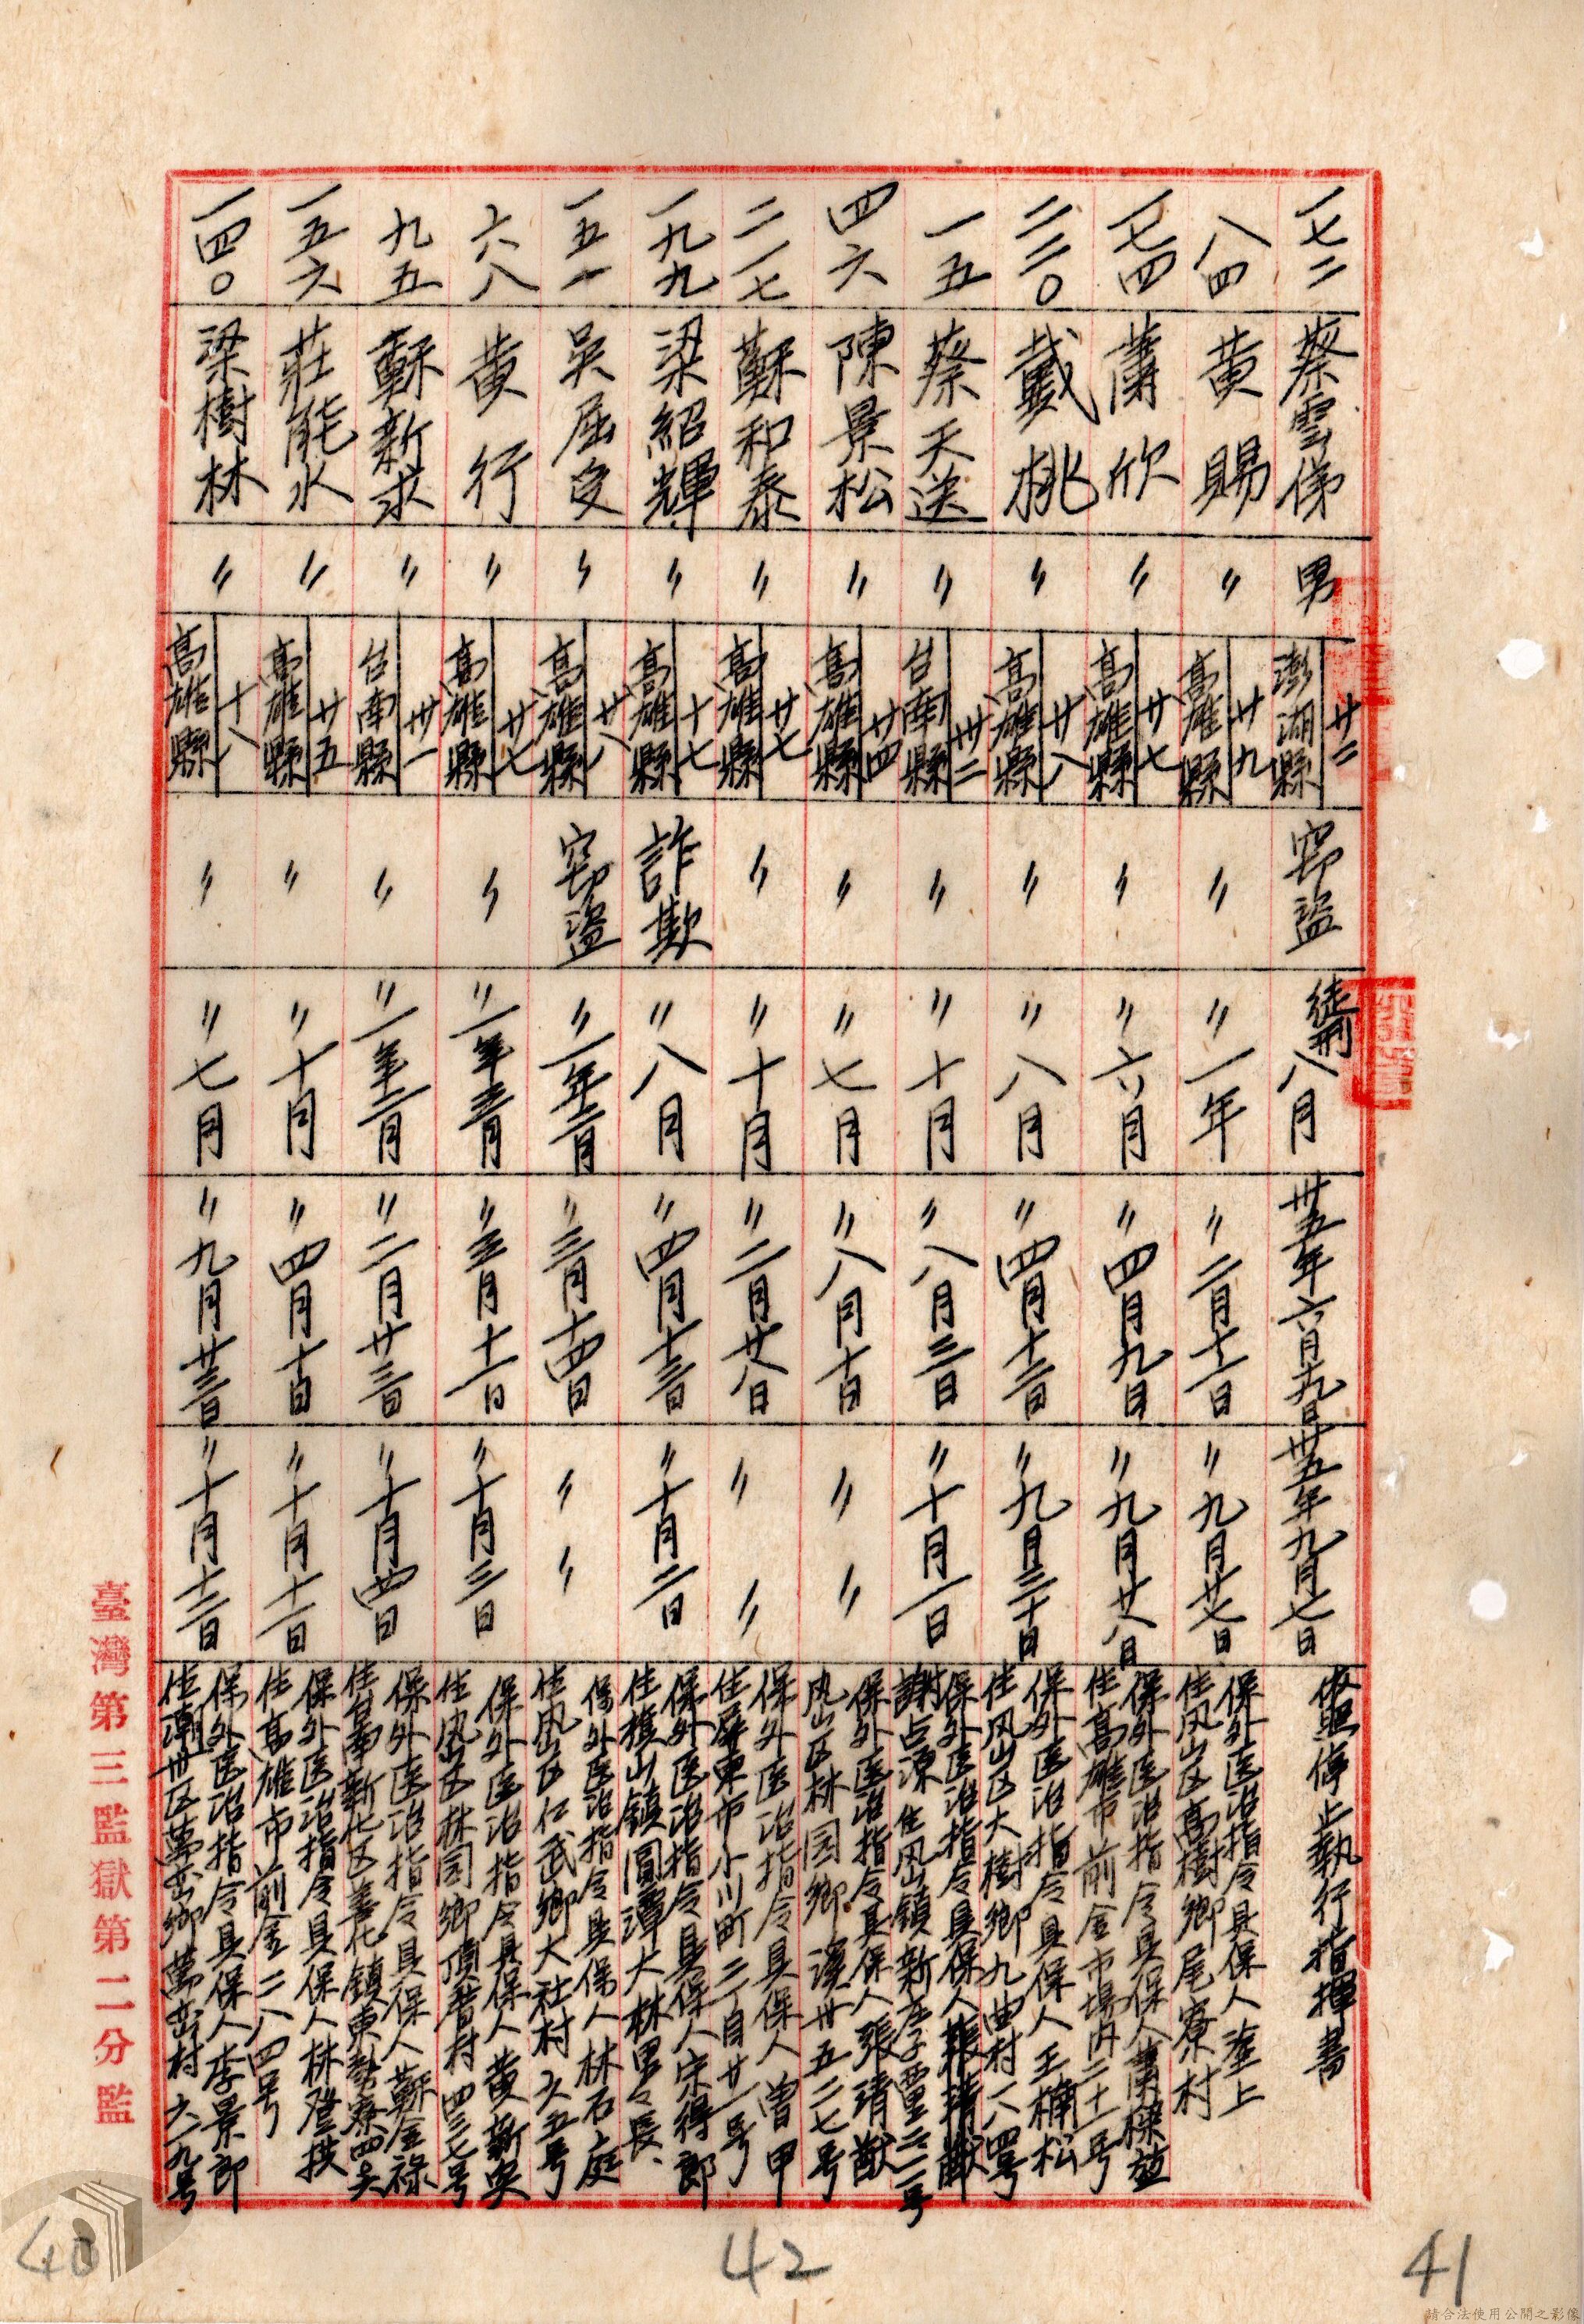 一七二 蔡雲俤 男 廿二 澎湖縣 竊盜 徒刑八月 卅五年六月十九日 卅五年九月七日 依照停止執行指揮書
八四 黃賜 〃 廿九 高雄縣 〃 〃一年 〃二月十二日 〃九月廿七日 保外医治指令具保人塗上
住风山区高樹鄉尾寮村
一七四 蕭欣 〃 廿七 高雄縣 〃 〃六月 〃四月九日 〃九月廿八日 保外医治指令具保人蕭
住高雄市前金市場內二十一号
二二〇 戴桃 〃 廿八 高雄縣 〃 〃八月 〃四月十二日 〃九月三十日 保外医治指令具保人王楠松
住风山区大樹鄉九曲村一八四号
一五 蔡天送 〃 卅二 台南縣 〃 〃十月 〃八月三日 〃十月一日 保外医治指令具保人
謝占源住风山鎮新庄子里三二号
四六 陳景松 〃 廿四 高雄縣 〃 〃七月 〃八月十日 〃〃 保外医治指令具保人張清猷
风山区林园鄉溪卅五二七号
二一七 蘇和泰 〃 廿七 高雄縣 〃 〃十月 〃二月廿八日 〃〃 保外医治指令具保人曾甲
住屏東市小川町二丁目廿一号
一九九 梁紹輝 〃 十七 高雄縣 詐欺 〃八月 〃四月十三日 〃十月二日 保外医治指令具保人宋得郎
住旗山鎮圓潭大林里々長
一五一 吳屈受 〃 廿八 高雄縣 竊盜 〃一年二月 〃三月十四日 〃〃 保外医治指令具保人林石庭
住风山区仁武鄉大社村六五号
六八 黃行 〃 廿七 高雄縣 〃 〃一年三月 〃三月十一日 〃十月三日 保外医治指令具保人黃新央
住风山区林园鄉頂厝村四三七号
九五 蘇新求 〃 卅一 台南縣 〃 〃一年二月 〃二月廿三日 〃十月四日 保外医治指令具保人蘇金祿
住台南新化区善化鎮東勢寮四
一五六 莊能水 〃 廿五 高雄縣 〃 〃十月 〃四月十日 〃十月十一日 保外医治指令具保人林登扶
住高雄市前金二八四号
一四〇 梁樹林 〃 十八 高雄縣 〃 〃七月 〃九月廿三日 〃十月十二日 保外医治指令具保人李景郎
住潮卅区萬峦鄉萬峦村六一九号
臺灣第三監獄第二分監
40
42
41
請合法使用公開之影像